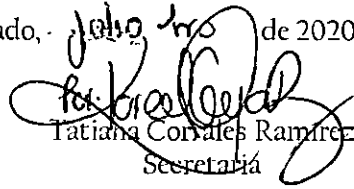 ado, Julio 1ro de 2020
Por:
Tatiana Corrales Ramirez
Secretaria